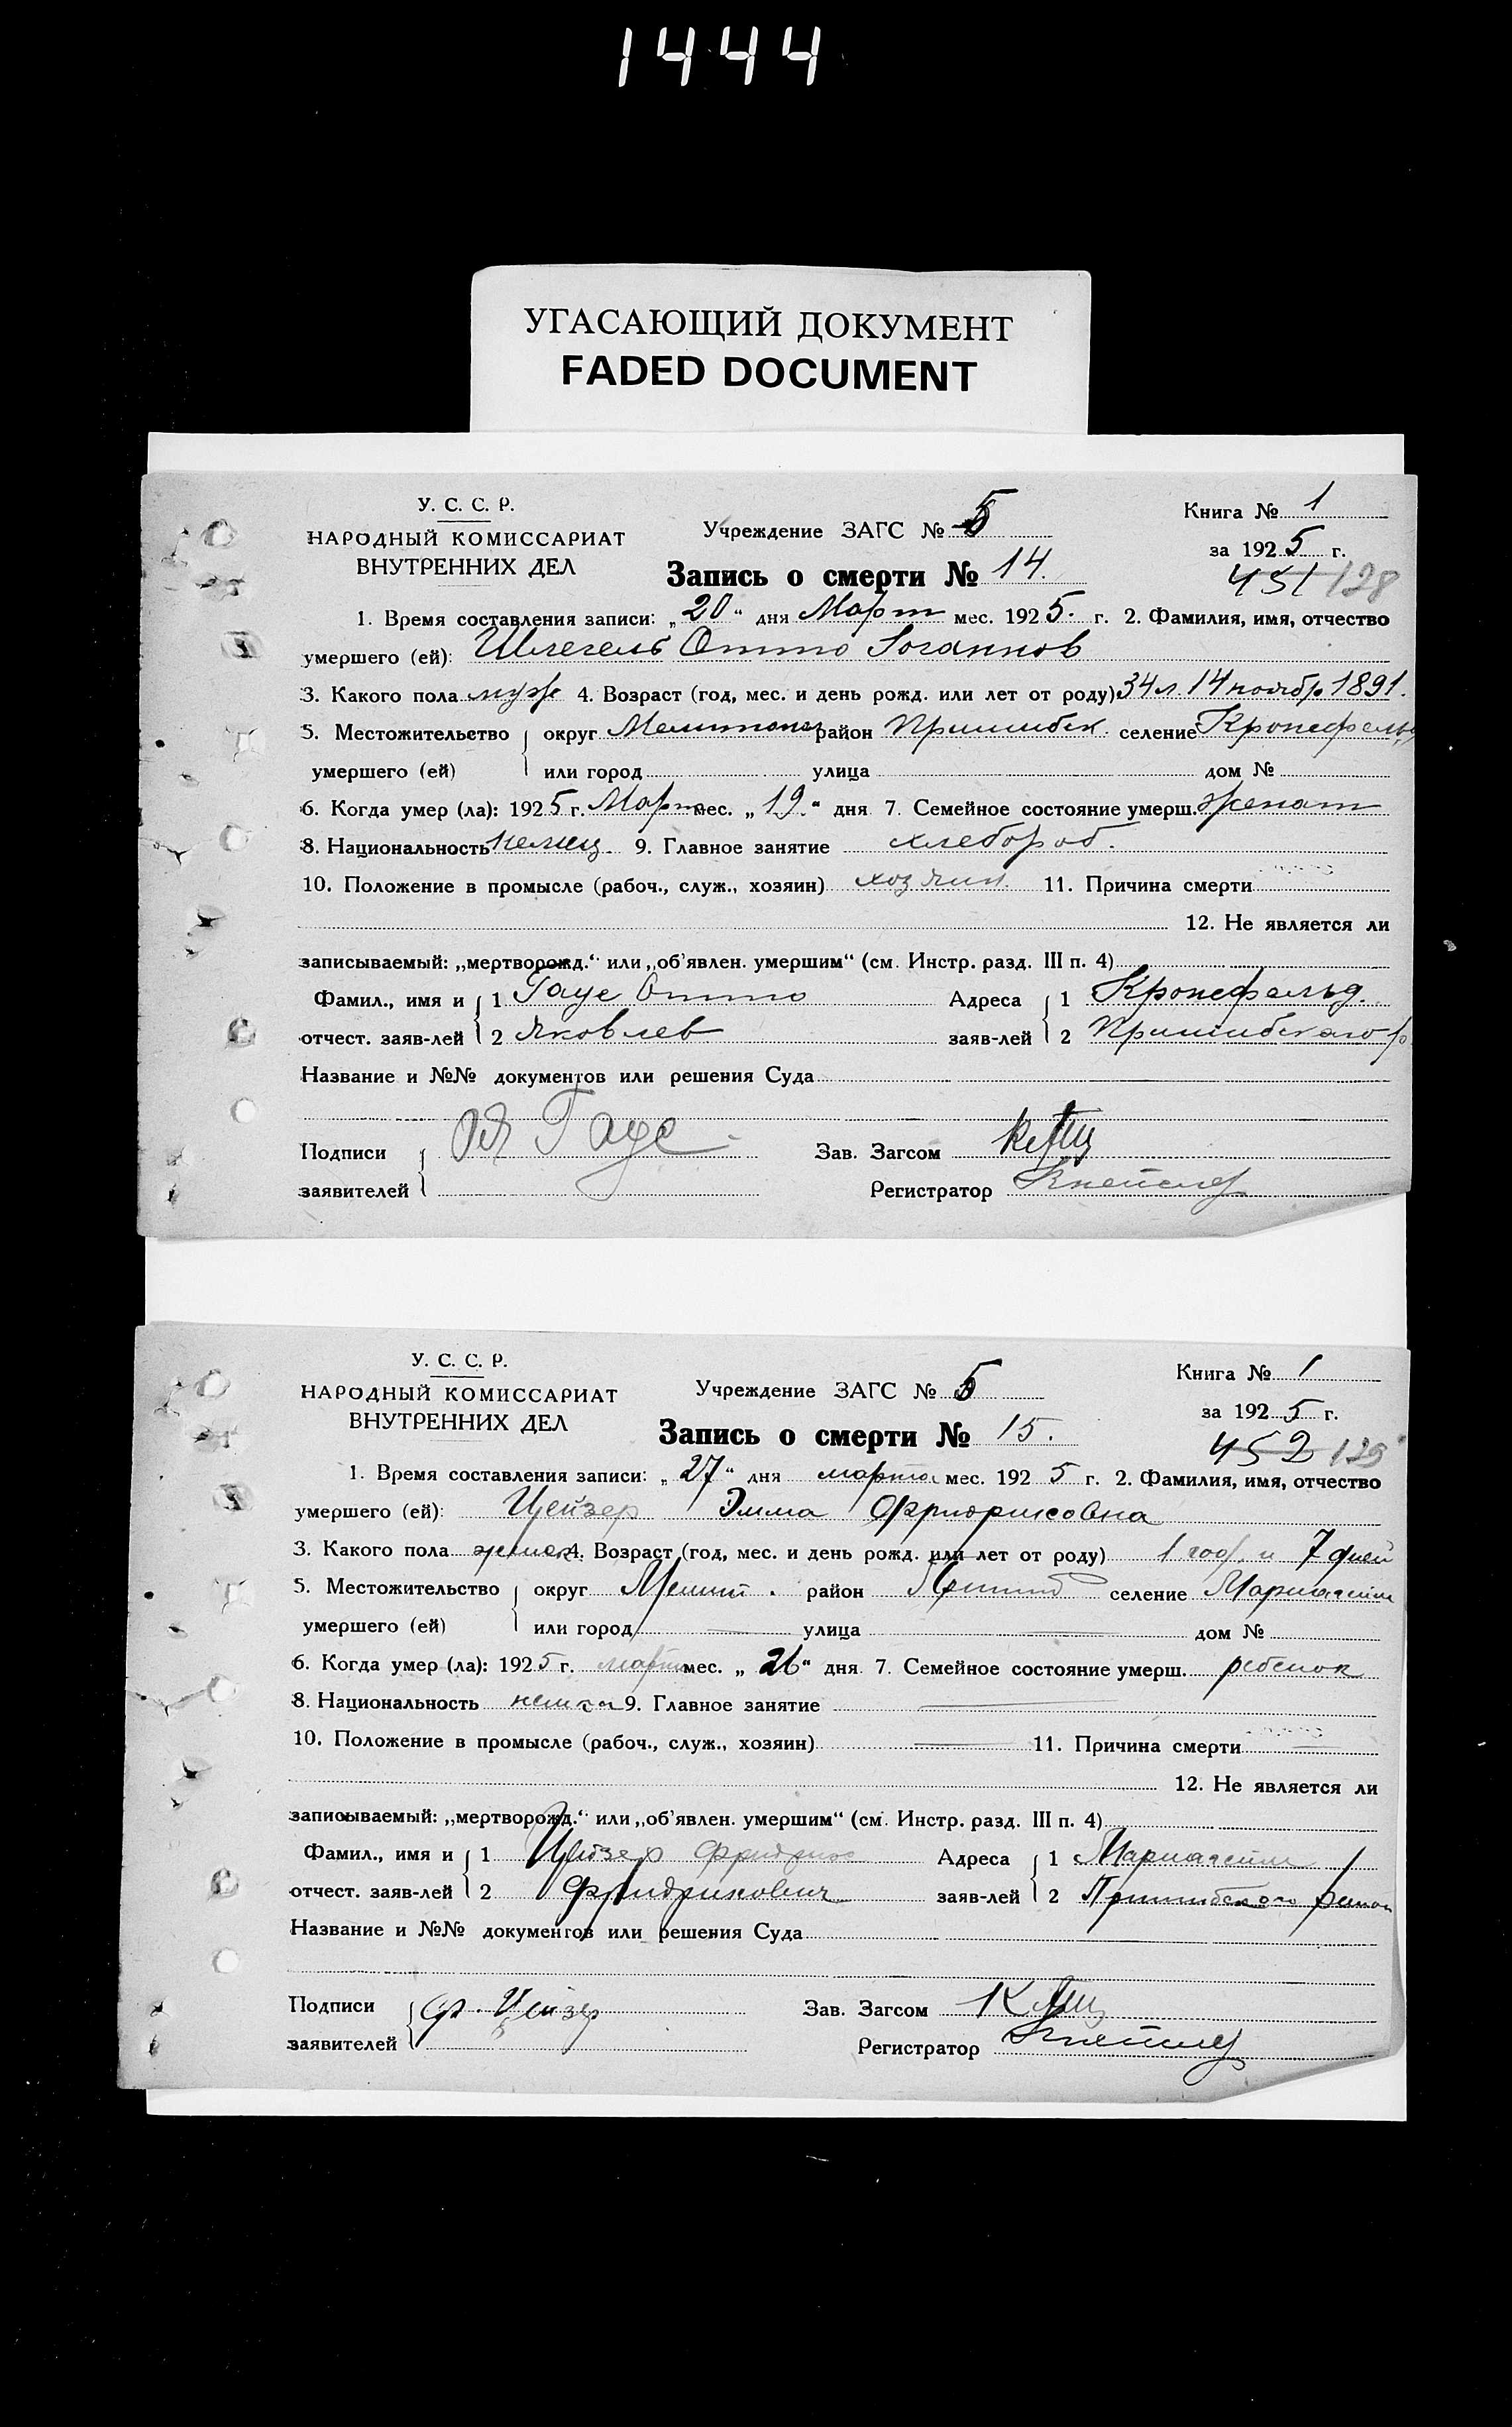 1444
УГАСАЮЩИЙ ДОКУМЕНТ
FADED DOCUMENT
У. С. С. Р.
НАРОДНЫЙ КОМИССАРИАТ
ВНУТРЕННИХ ДЕЛ
Учреждение ЗАГС № 5
Запись о смерти № 14.
Книга № 1
за 1925 г.
451 128
1. Время составления записи: „20“ дня Март мес. 1925. г. 2. Фамилия, имя, отчество
умершего (ей): Шлегель Отто Иоганнов
3. Какого пола муж 4. Возраст (год, мес. и день рожд. или лет от роду) 34 л. 14 ноябр 1891.
5. Местожительство округ Мелитопол район Пришибск. селение Кронсфельд
умершего (ей) или город улица дом №
6. Когда умер (ла): 1925 г. Март мес. „19.“ дня 7. Семейное состояние умерш. женат
8. Национальность немец. 9. Главное занятие хлебороб.
10. Положение в промысле (рабоч., служ., хозяин) хозяин. 11. Причина смерти
12. Не является ли
записываемый: „мертворожд.“ или „об’явлен. умершим“ (см. Инстр. разд. III п. 4)
Фамил., имя и 1 Гаус Отто Адреса 1 Кронсфельд.
отчест. заяв-лей 2 Яковлев заяв-лей 2 Пришибского р.
Название и №№ документов или решения Суда
Подписи Гаус Зав. Загсом
заявителей Регистратор
У. С. С. Р.
НАРОДНЫЙ КОМИССАРИАТ
ВНУТРЕННИХ ДЕЛ
Учреждение ЗАГС № 5
Запись о смерти № 15.
Книга № 1
за 1925 г.
452 129
1. Время составления записи: „27“ дня марта мес. 1925 г. 2. Фамилия, имя, отчество
умершего (ей): Цейзер Эмма Фридриховна
3. Какого пола женск 4. Возраст (год, мес. и день рожд. или лет от роду) 1 год. и 7 дней
5. Местожительство округ Мелит. район Пришиб селение
умершего (ей) или город улица дом №
6. Когда умер (ла): 1925 г. марта мес. „26“ дня 7. Семейное состояние умерш. ребенок
8. Национальность немка 9. Главное занятие
10. Положение в промысле (рабоч., служ., хозяин) 11. Причина смерти
12. Не является ли
записываемый: „мертворожд.“ или „об’явлен. умершим“ (см. Инстр. разд. III п. 4)
Фамил., имя и 1 Цейзер Фридрих Адреса 1
отчест. заяв-лей 2 Фридрихович заяв-лей 2 Пришибского район
Название и №№ документов или решения Суда
Подписи Фр. Цейзер Зав. Загсом
заявителей Регистратор